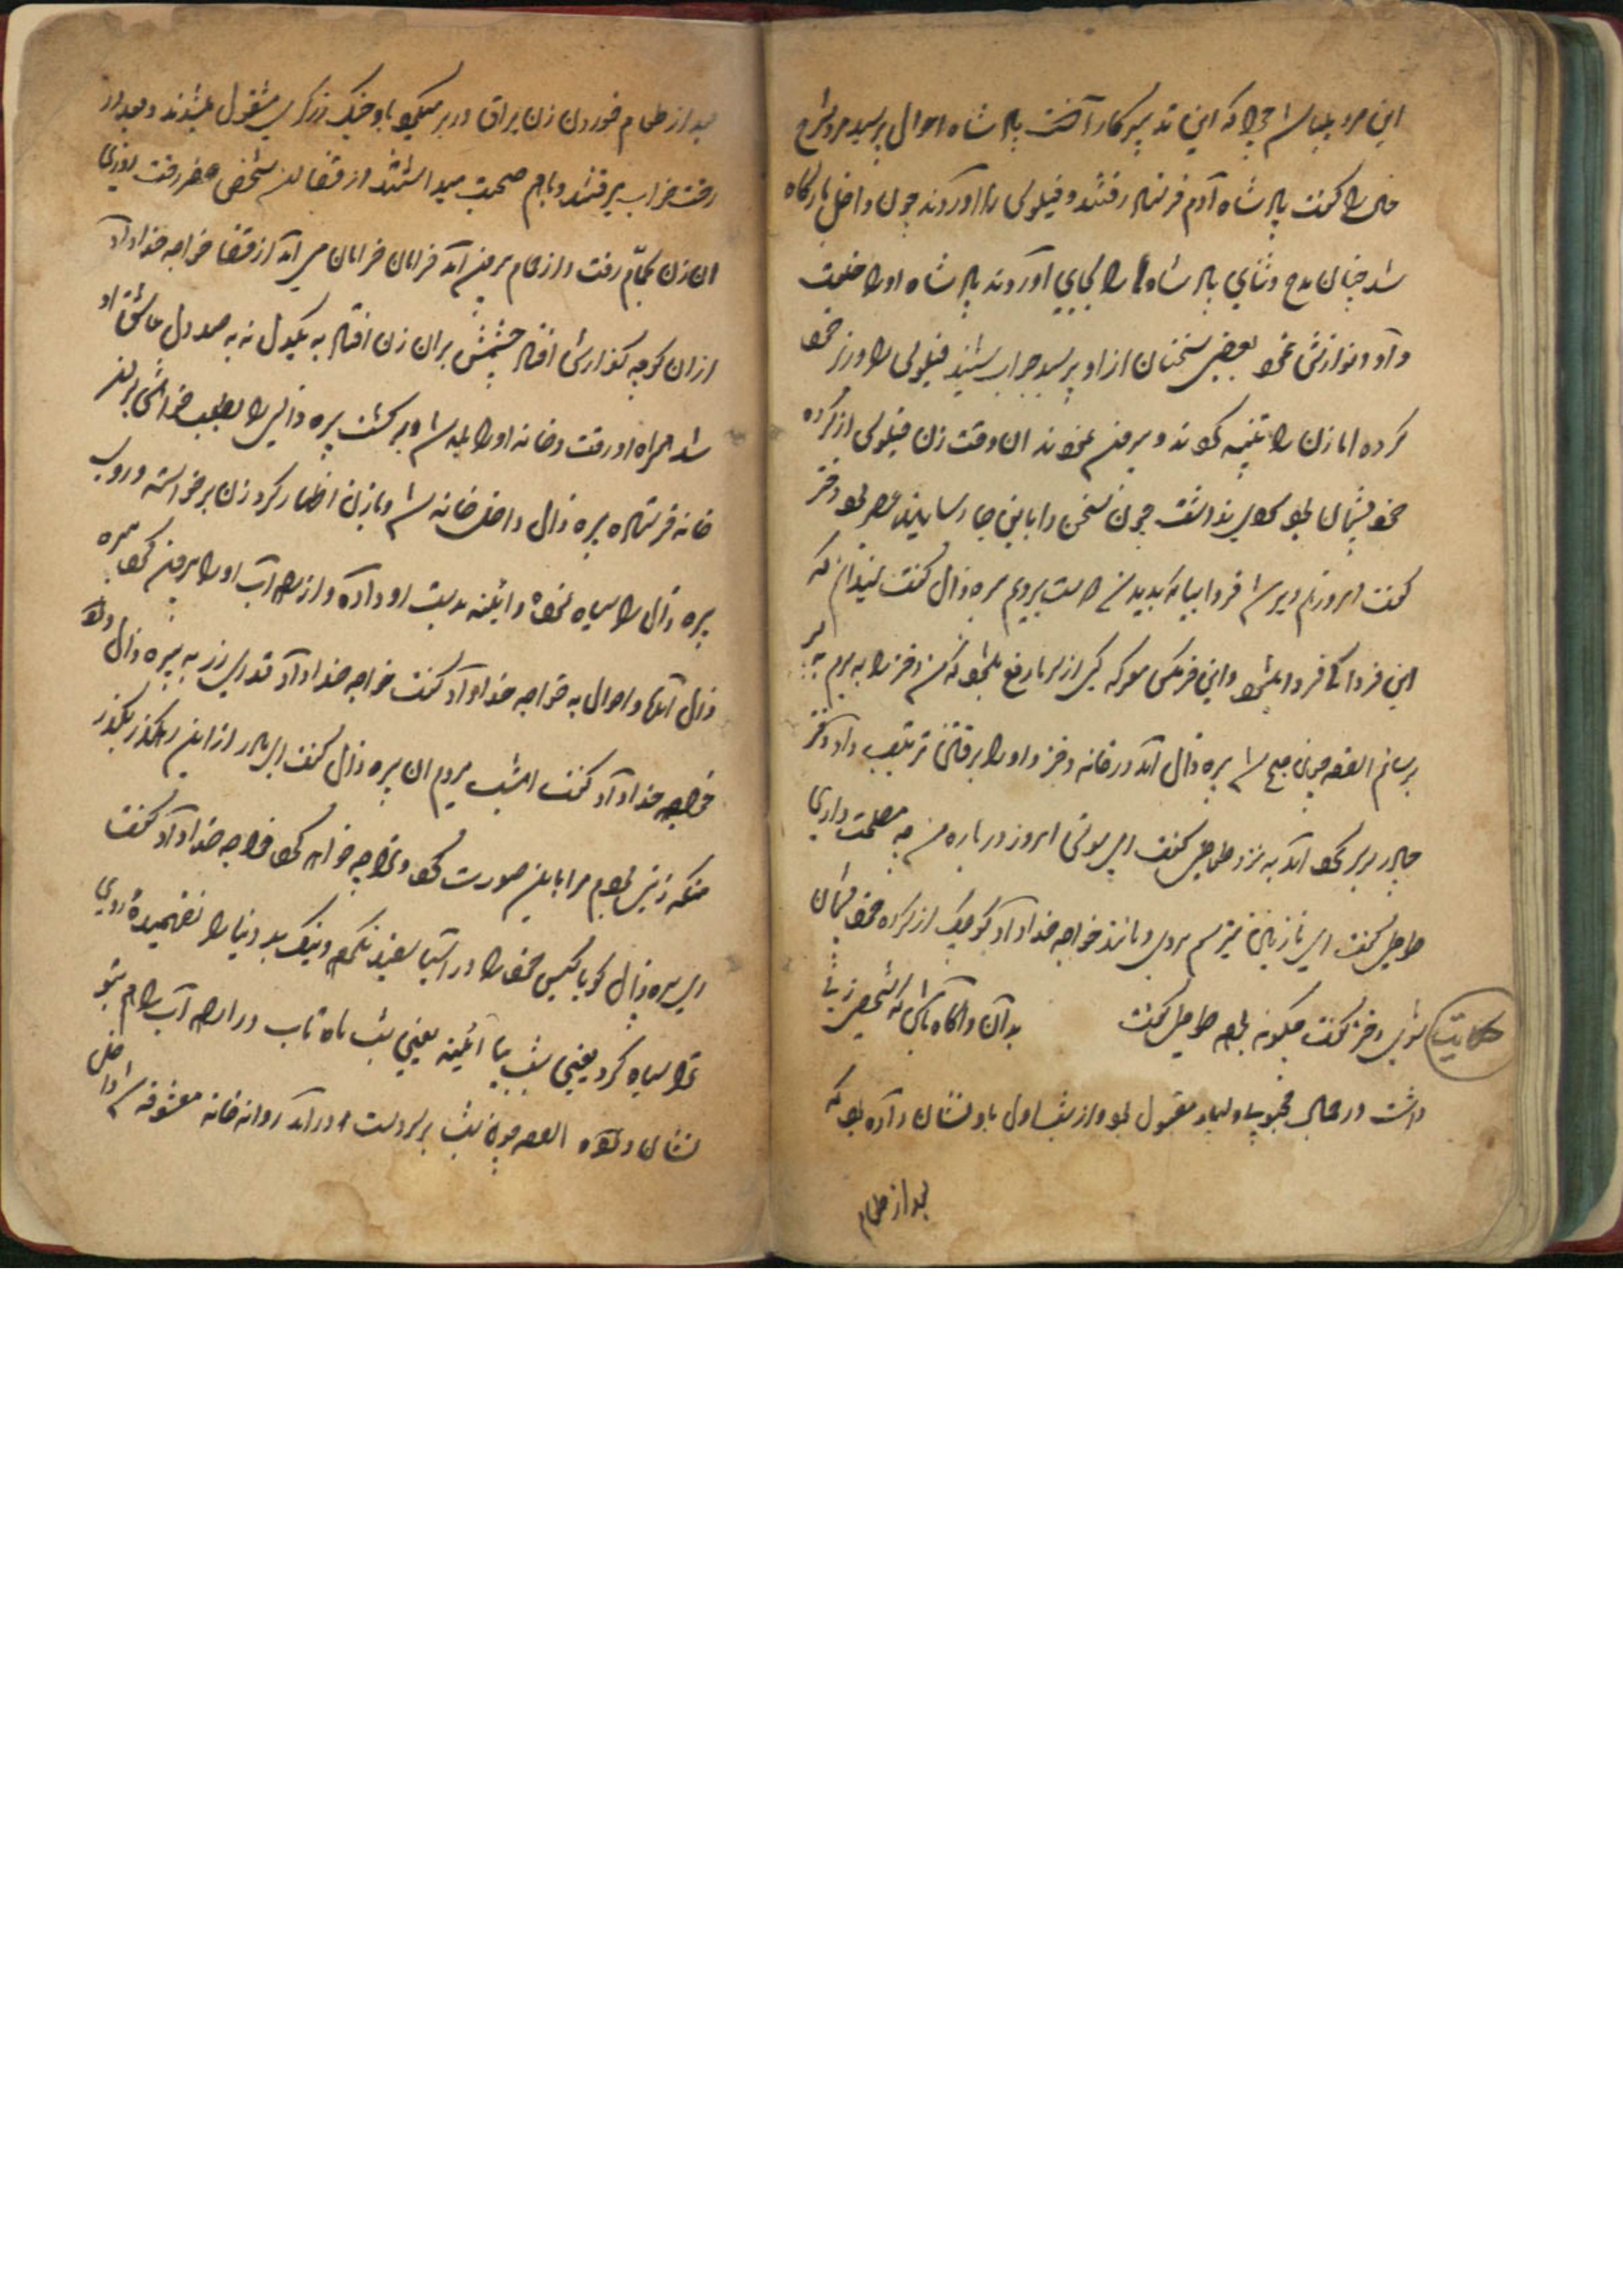 این مرد پیدا شد چرا که این تدبیر کار آنست پادشاه احوال پرسید مرد شرح
حال را گفت پادشاه آدم فرستاد رفتند و فیلولی را آوردند چون داخل بارگاه
شد چنان مدح و ثنای پادشاه را بجای آورد که پادشاه او را خلعت
داد و نوازش نمود بعضی سخنان از او پرسید جواب شنید فیلولی را وزیر خود
کرده اما زن را تنبیه کردند و بیرون نمودند آن وقت زن فیلولی از کرده
خود پشیمان بود سودی نداشت چون سخن را باین جا رسانید عصر بود دختر
گفت امروز هم دیر شد فردا بیا که بدیدن دوست برویم پیره زال گفت نمیدانم که
این فردا کی فردا میشود و این
برسانم القصه چون صبح شد پیره زال آمد در خانه دختر و او را برفتن ترغیب داد دختر
چادر بر سر کرد آمد به نزد طوطی گفت ای مونس امروز در باره من چه مصلحت داری
طوطی گفت ای نازنین میترسم بروی و مانند خواجه خداداد کوچک از کرده خود پشیمان
حکایت شوی دختر گفت چگونه بود طوطی گفت بدان و آگاه باش که شخصی زنی
داشت در کمال محبوبی و بسیار مقبول بود و از شب اول باو نشان داده بود که
بعد از طعام
بعد از طعام خوردن زن یراق در بر میکرد با و جنگ زرگری مشغول میشدند و بعد از
رخت خواب میرفتند و باهم صحبت میداشتند از قضا این شخص سفر رفت روزی
آن زن بحمام رفت و از حمام بیرون آمد خرامان خرامان می آمد از قضا خواجه خداداد
از آن کوچه گذارش افتاد چشمش بر آن زن افتاد به یکدل نه به صد دل عاشق او
شد همراه او رفت و خانه او را بلد شد و برگشت پیره زالی را بطلب خواستگاری بدر
خانه فرستاد پیره زال داخل خانه شد و با زن اظهار کرد زن برخواسته و روی
پیره زال را سیاه نمود و آئینه بدست او داده و از راه آب او را بیرون کرد پیره
زال آمد و احوال به خواجه خداداد گفت خواجه خداداد قدری زر به پیره زال داد
خواجه خداداد گفت امشب میروم آن پیره زال گفت ای مادر از این رهگذر بگذر
منکه زن بودم مرا باین صورت کرد و ترا چه خواهد کرد خواجه خداداد گفت
ای پیره زال گویا گیس خود را در آسیا سفید نکردی و نیک و بد دنیا را نفهمیده روی
ترا سیاه کرد یعنی شب بیا آئینه یعنی شب ماه تاب و راه آب را هم بتو
نشان داده القصه چون شب بر سر دست در آمد روانه خانه معشوقه شد داخل